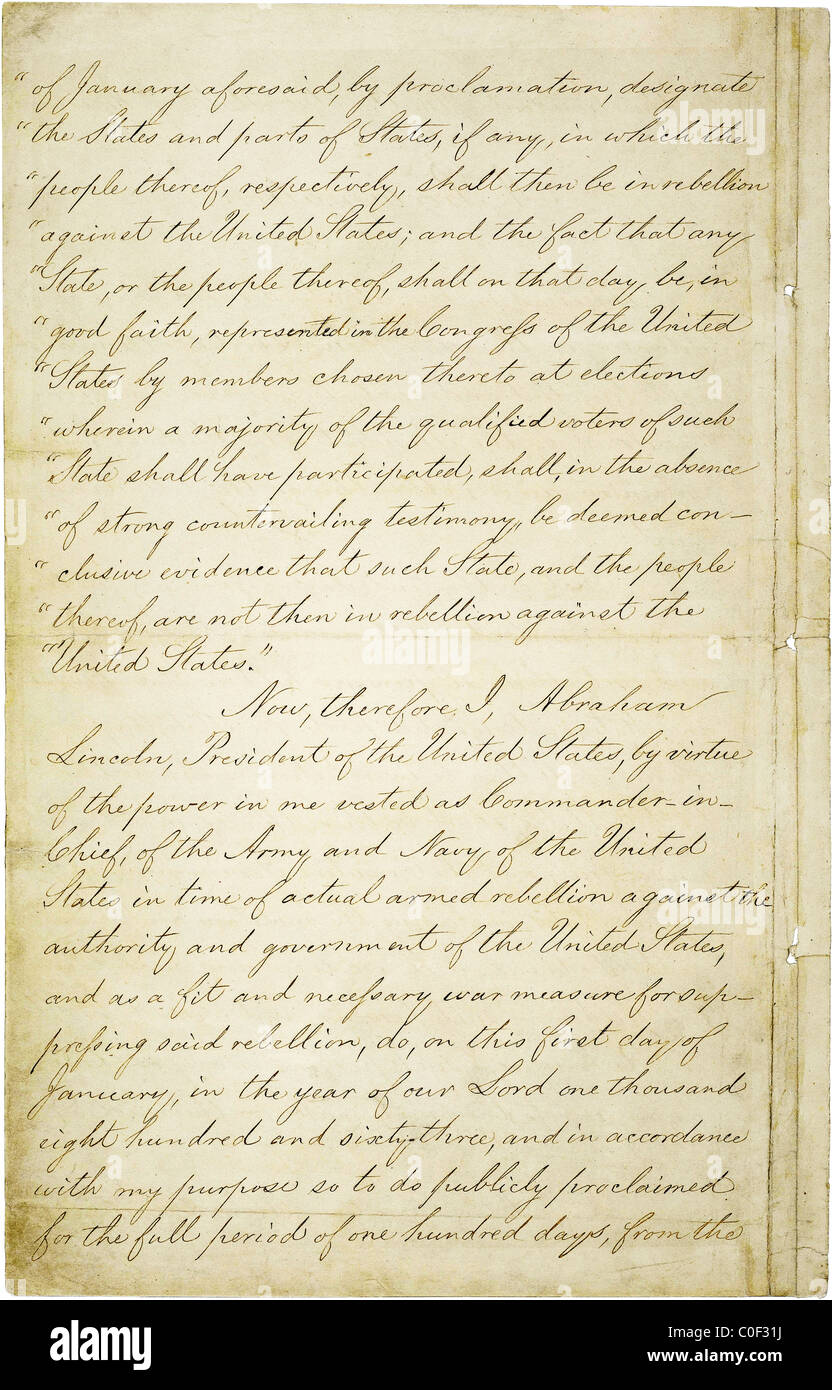 " of January aforesaid, by proclamation, designate
" the States and parts of States, if any, in which the
" people thereof, respectively, shall then be in rebellion
" against the United States; and the fact that any
" State, or the people thereof, shall on that day be, in
" good faith, represented in the Congress of the United
" States by members chosen thereto at elections
" wherein a majority of the qualified voters of such
" State shall have participated, shall, in the absence
" of strong countervailing testimony, be deemed con-
" clusive evidence that such State, and the people
" thereof, are not then in rebellion against the
" United States."
Now, therefore I, Abraham
Lincoln, President of the United States, by virtue
of the power in me vested as Commander-in-
Chief, of the Army and Navy of the United
States in time of actual armed rebellion against the
authority and government of the United States,
and as a fit and necessary war measure for sup-
pressing said rebellion, do, on this first day of
January, in the year of our Lord one thousand
eight hundred and sixty-three, and in accordance
with my purpose so to do publicly proclaimed
for the full period of one hundred days, from the
alamy
Image ID: C0F31J
www.alamy.com